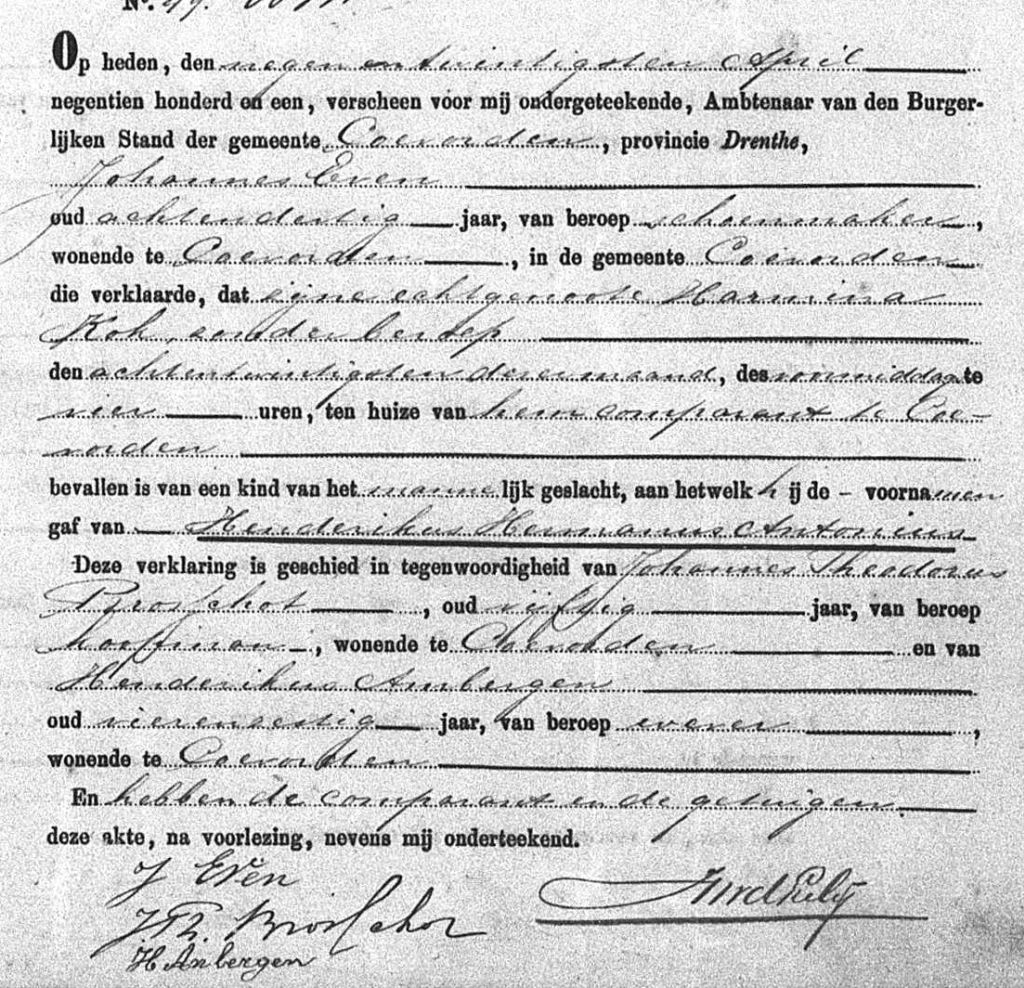 No. 49.
Op heden, den negen en twintigsten April
negentien honderd en een, verscheen voor mij ondergeteekende, Ambtenaar van den Burger-
lijken Stand der gemeente Coevorden, provincie Drenthe,
Johannes Even
oud achtendertig jaar, van beroep schoenmaker,
wonende te Coevorden, in de gemeente Coevorden
die verklaarde, dat zijne echtgenoote Harmina
Kok, zonder beroep
den achtentwintigsten dezer maand, des voormiddags te
vier uren, ten huize van hem comparant te Coe-
vorden
bevallen is van een kind van het mannelijk geslacht, aan hetwelk hij de - voornamen
gaf van Henderikus Hermannus Antonius
Deze verklaring is geschied in tegenwoordigheid van Johannes Theodorus
Brosschot, oud vijftig jaar, van beroep
koopman, wonende te Coevorden en van
Henderikus Ambergen
oud vierenzestig jaar, van beroep wever,
wonende te Coevorden
En hebben de comparant en de getuigen
deze akte, na voorlezing, nevens mij onderteekend.
J Even
J.Th. Brosschot
H Anbergen